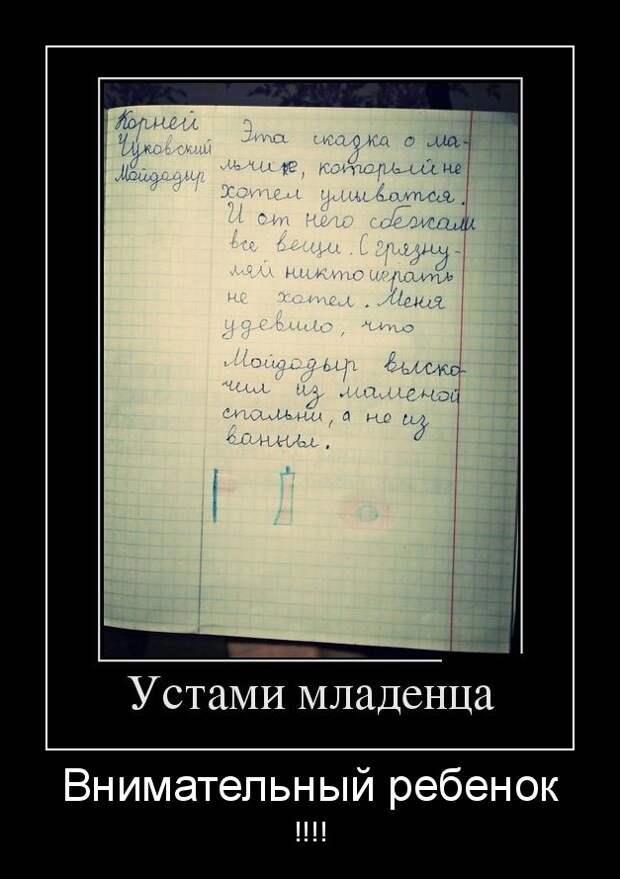 Корней
Чуковский
Мойдодыр
Эта сказка о ма-
льчике, который не
хотел умыватся.
И от него сбежали
все вещи. С грязну-
лей никто играть
не хотел. Меня
удевило, что
Мойдодыр выско-
чил из маменой
спальни, а не из
ванны.
Устами младенца
Внимательный ребенок
!!!!